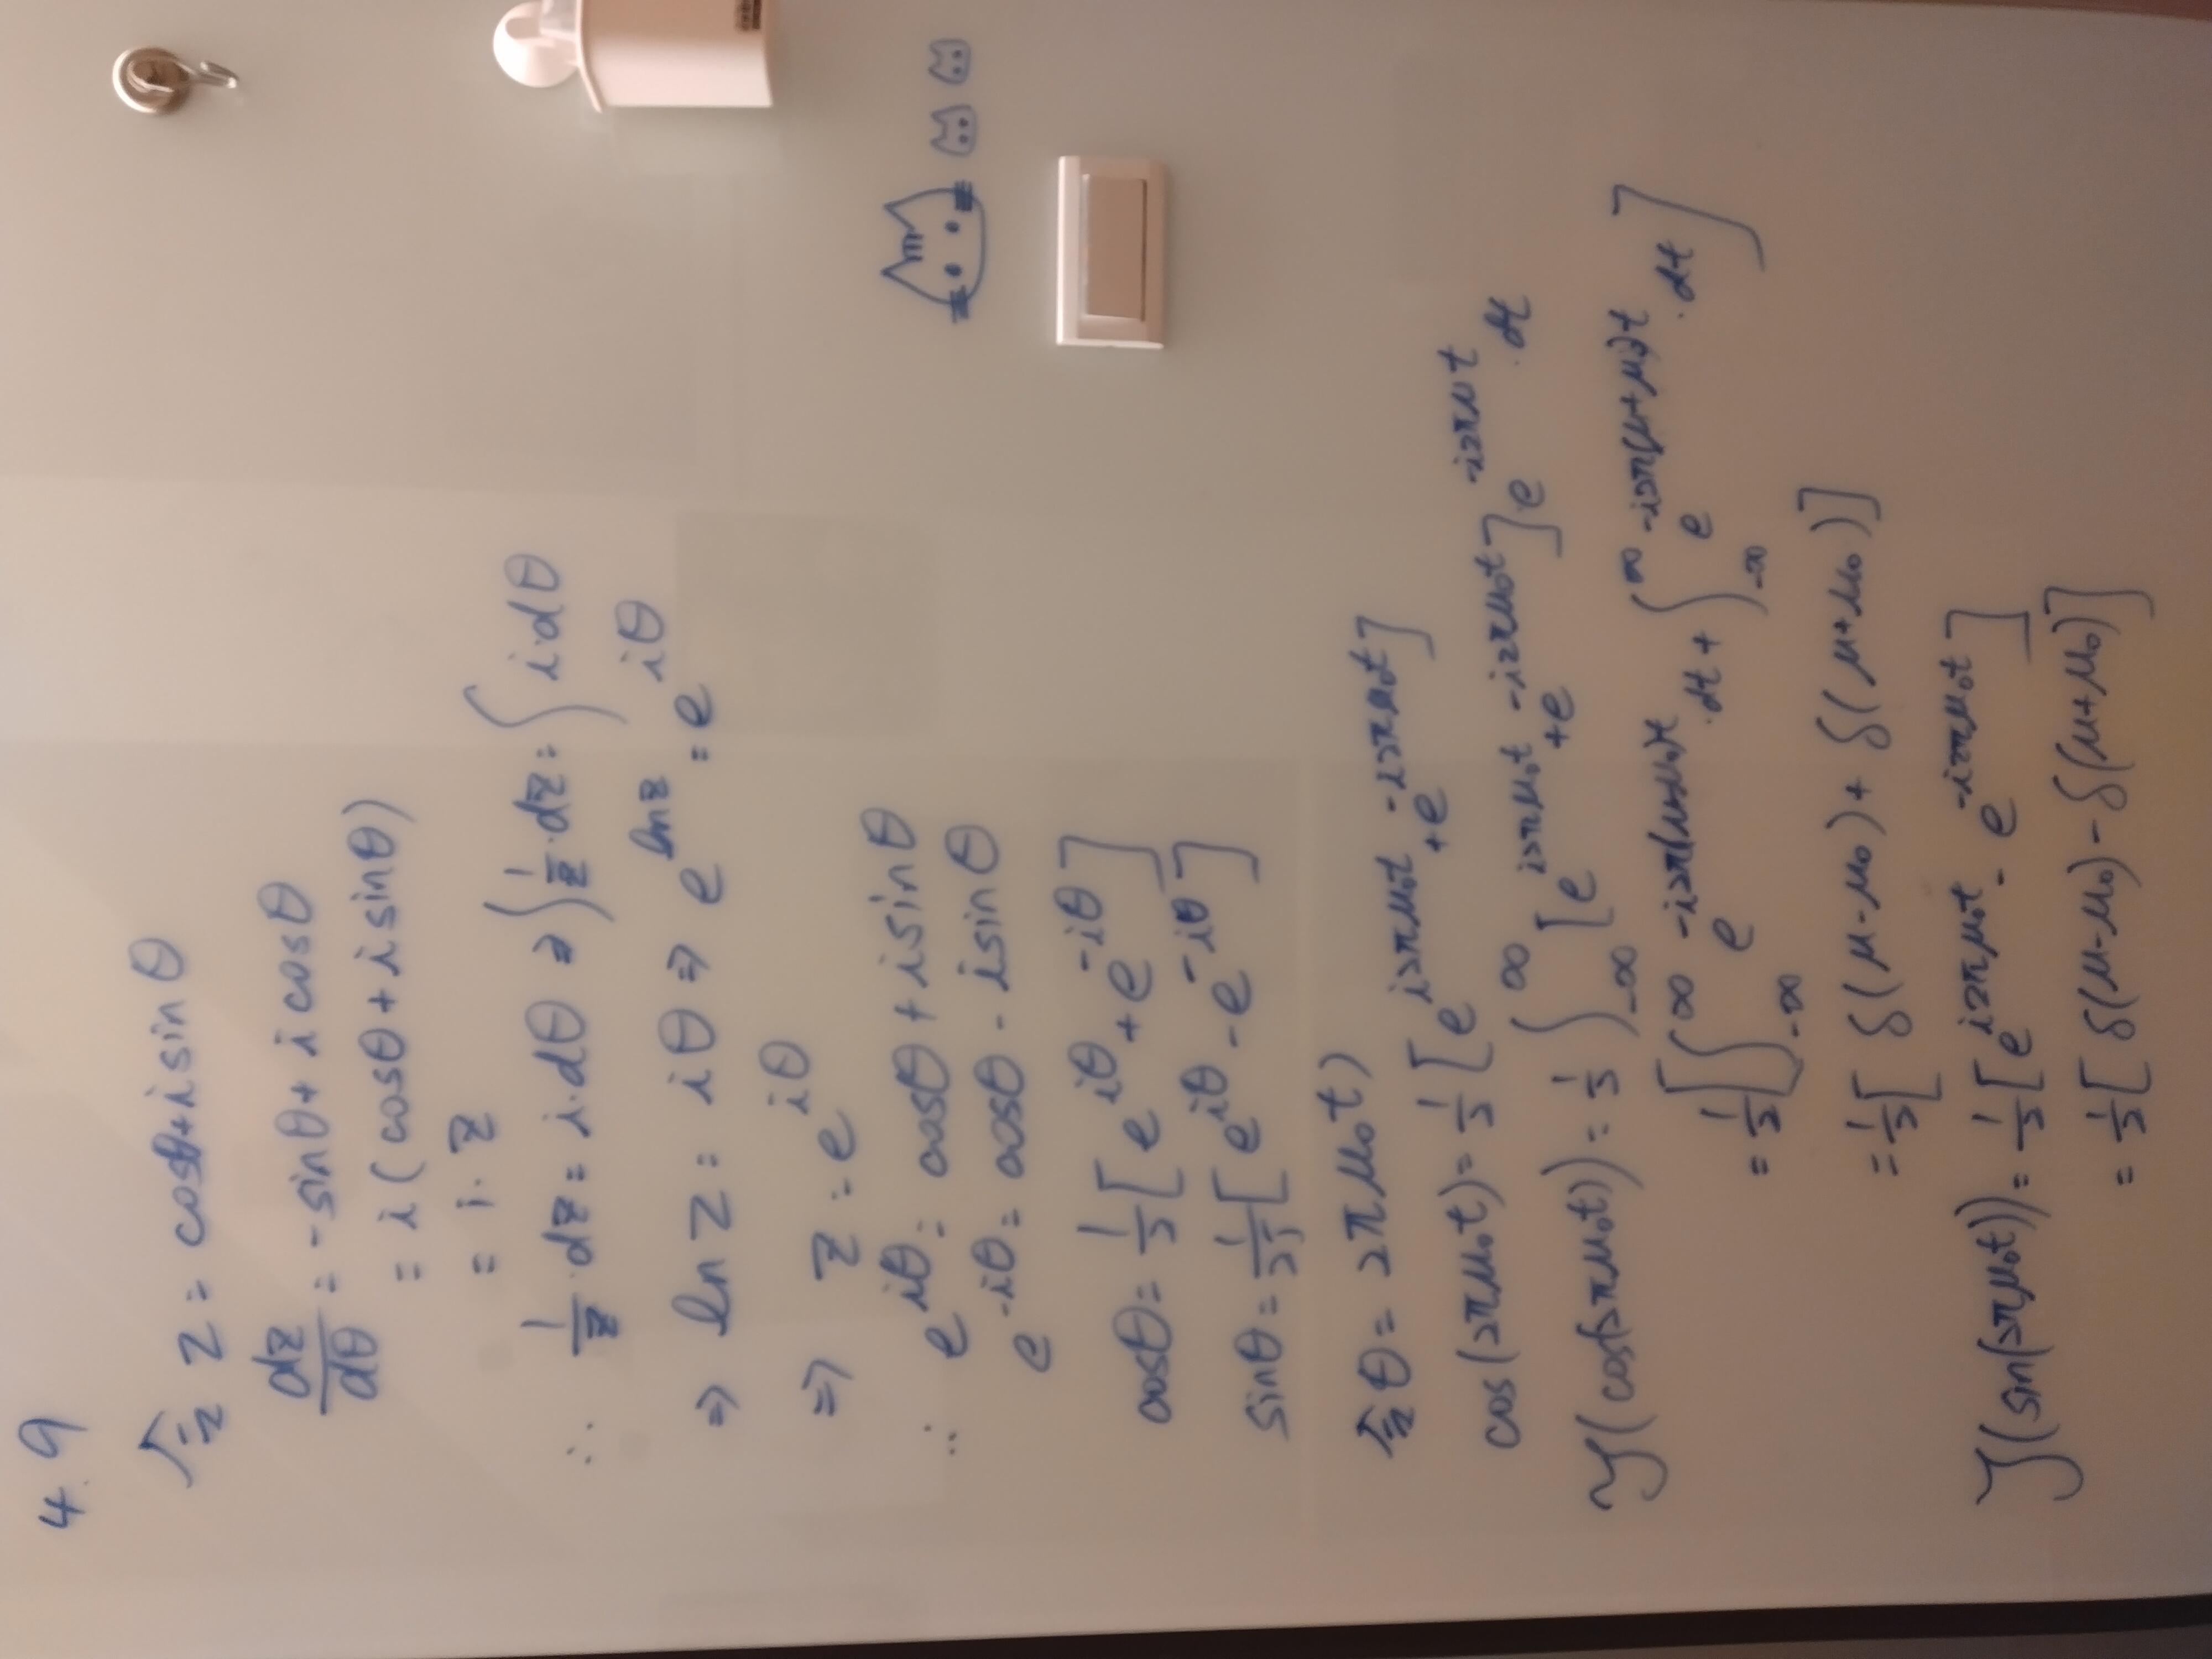 4.9
令 z = cosθ + i sin θ
dz/dθ = -sinθ + i cosθ
= i (cosθ + i sinθ)
= i · z
∴ 1/z · dz = i·dθ ⇒ ∫ 1/z · dz = ∫ i·dθ
⇒ ln z = iθ ⇒ e^{ln z} = e^{iθ}
⇒ z = e^{iθ}
∴ e^{iθ} = cosθ + i sinθ
e^{-iθ} = cosθ - i sinθ
cosθ = 1/2 [ e^{iθ} + e^{-iθ} ]
sinθ = 1/2j [ e^{iθ} - e^{-iθ} ]
令 θ = 2πμ₀t)
cos(2πμ₀t) = 1/2 [ e^{i2πμ₀t} + e^{-i2πμ₀t} ]
ℑ(cos(2πμ₀t)) = 1/2 ∫_{-∞}^{∞} [ e^{i2πμ₀t} + e^{-i2πμ₀t} ] e^{-i2πμt} · dt
= 1/2 [ ∫_{-∞}^{∞} e^{-i2π(μ-μ₀)t} · dt + ∫_{-∞}^{∞} e^{-i2π(μ+μ₀)t} · dt ]
= 1/2 [ δ(μ-μ₀) + δ(μ+μ₀) ]
ℑ(sin(2πμ₀t)) = 1/2 [ e^{i2πμ₀t} - e^{-i2πμ₀t} ]
= 1/2 [ δ(μ-μ₀) - δ(μ+μ₀) ]